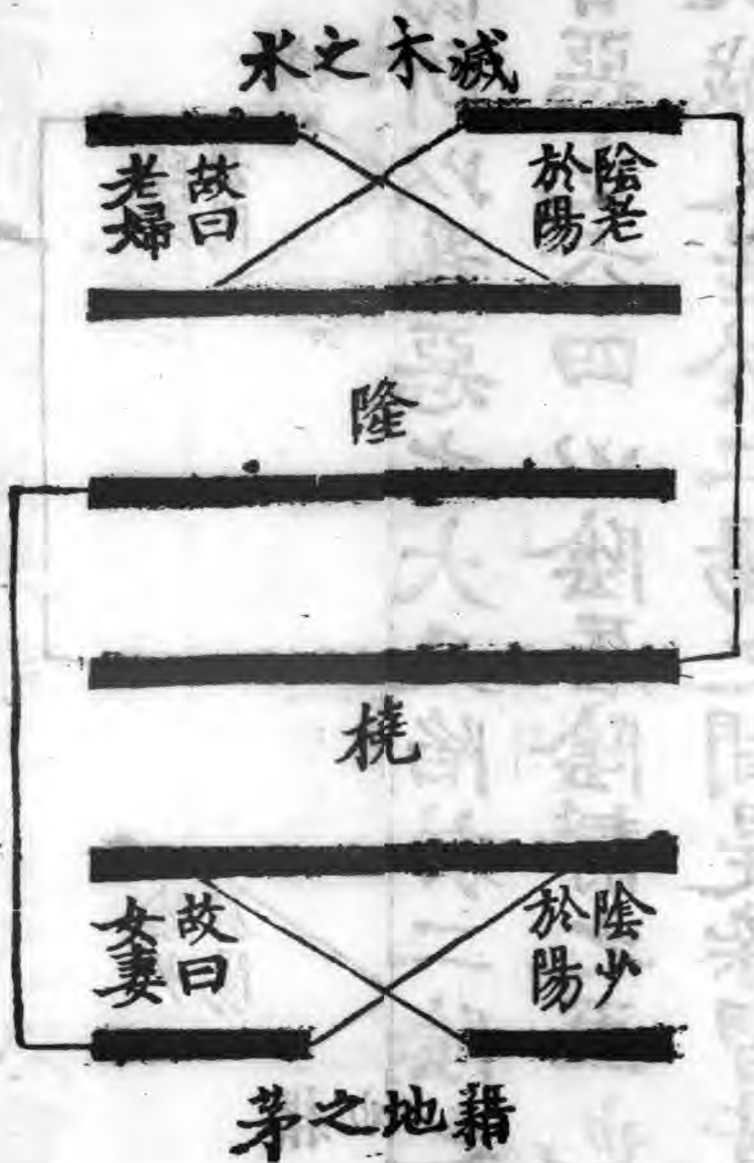 滅木之水
陰老
於陽
故曰
老婦
隆
橈
陰少
於陽
故曰
女妻
藉地之茅